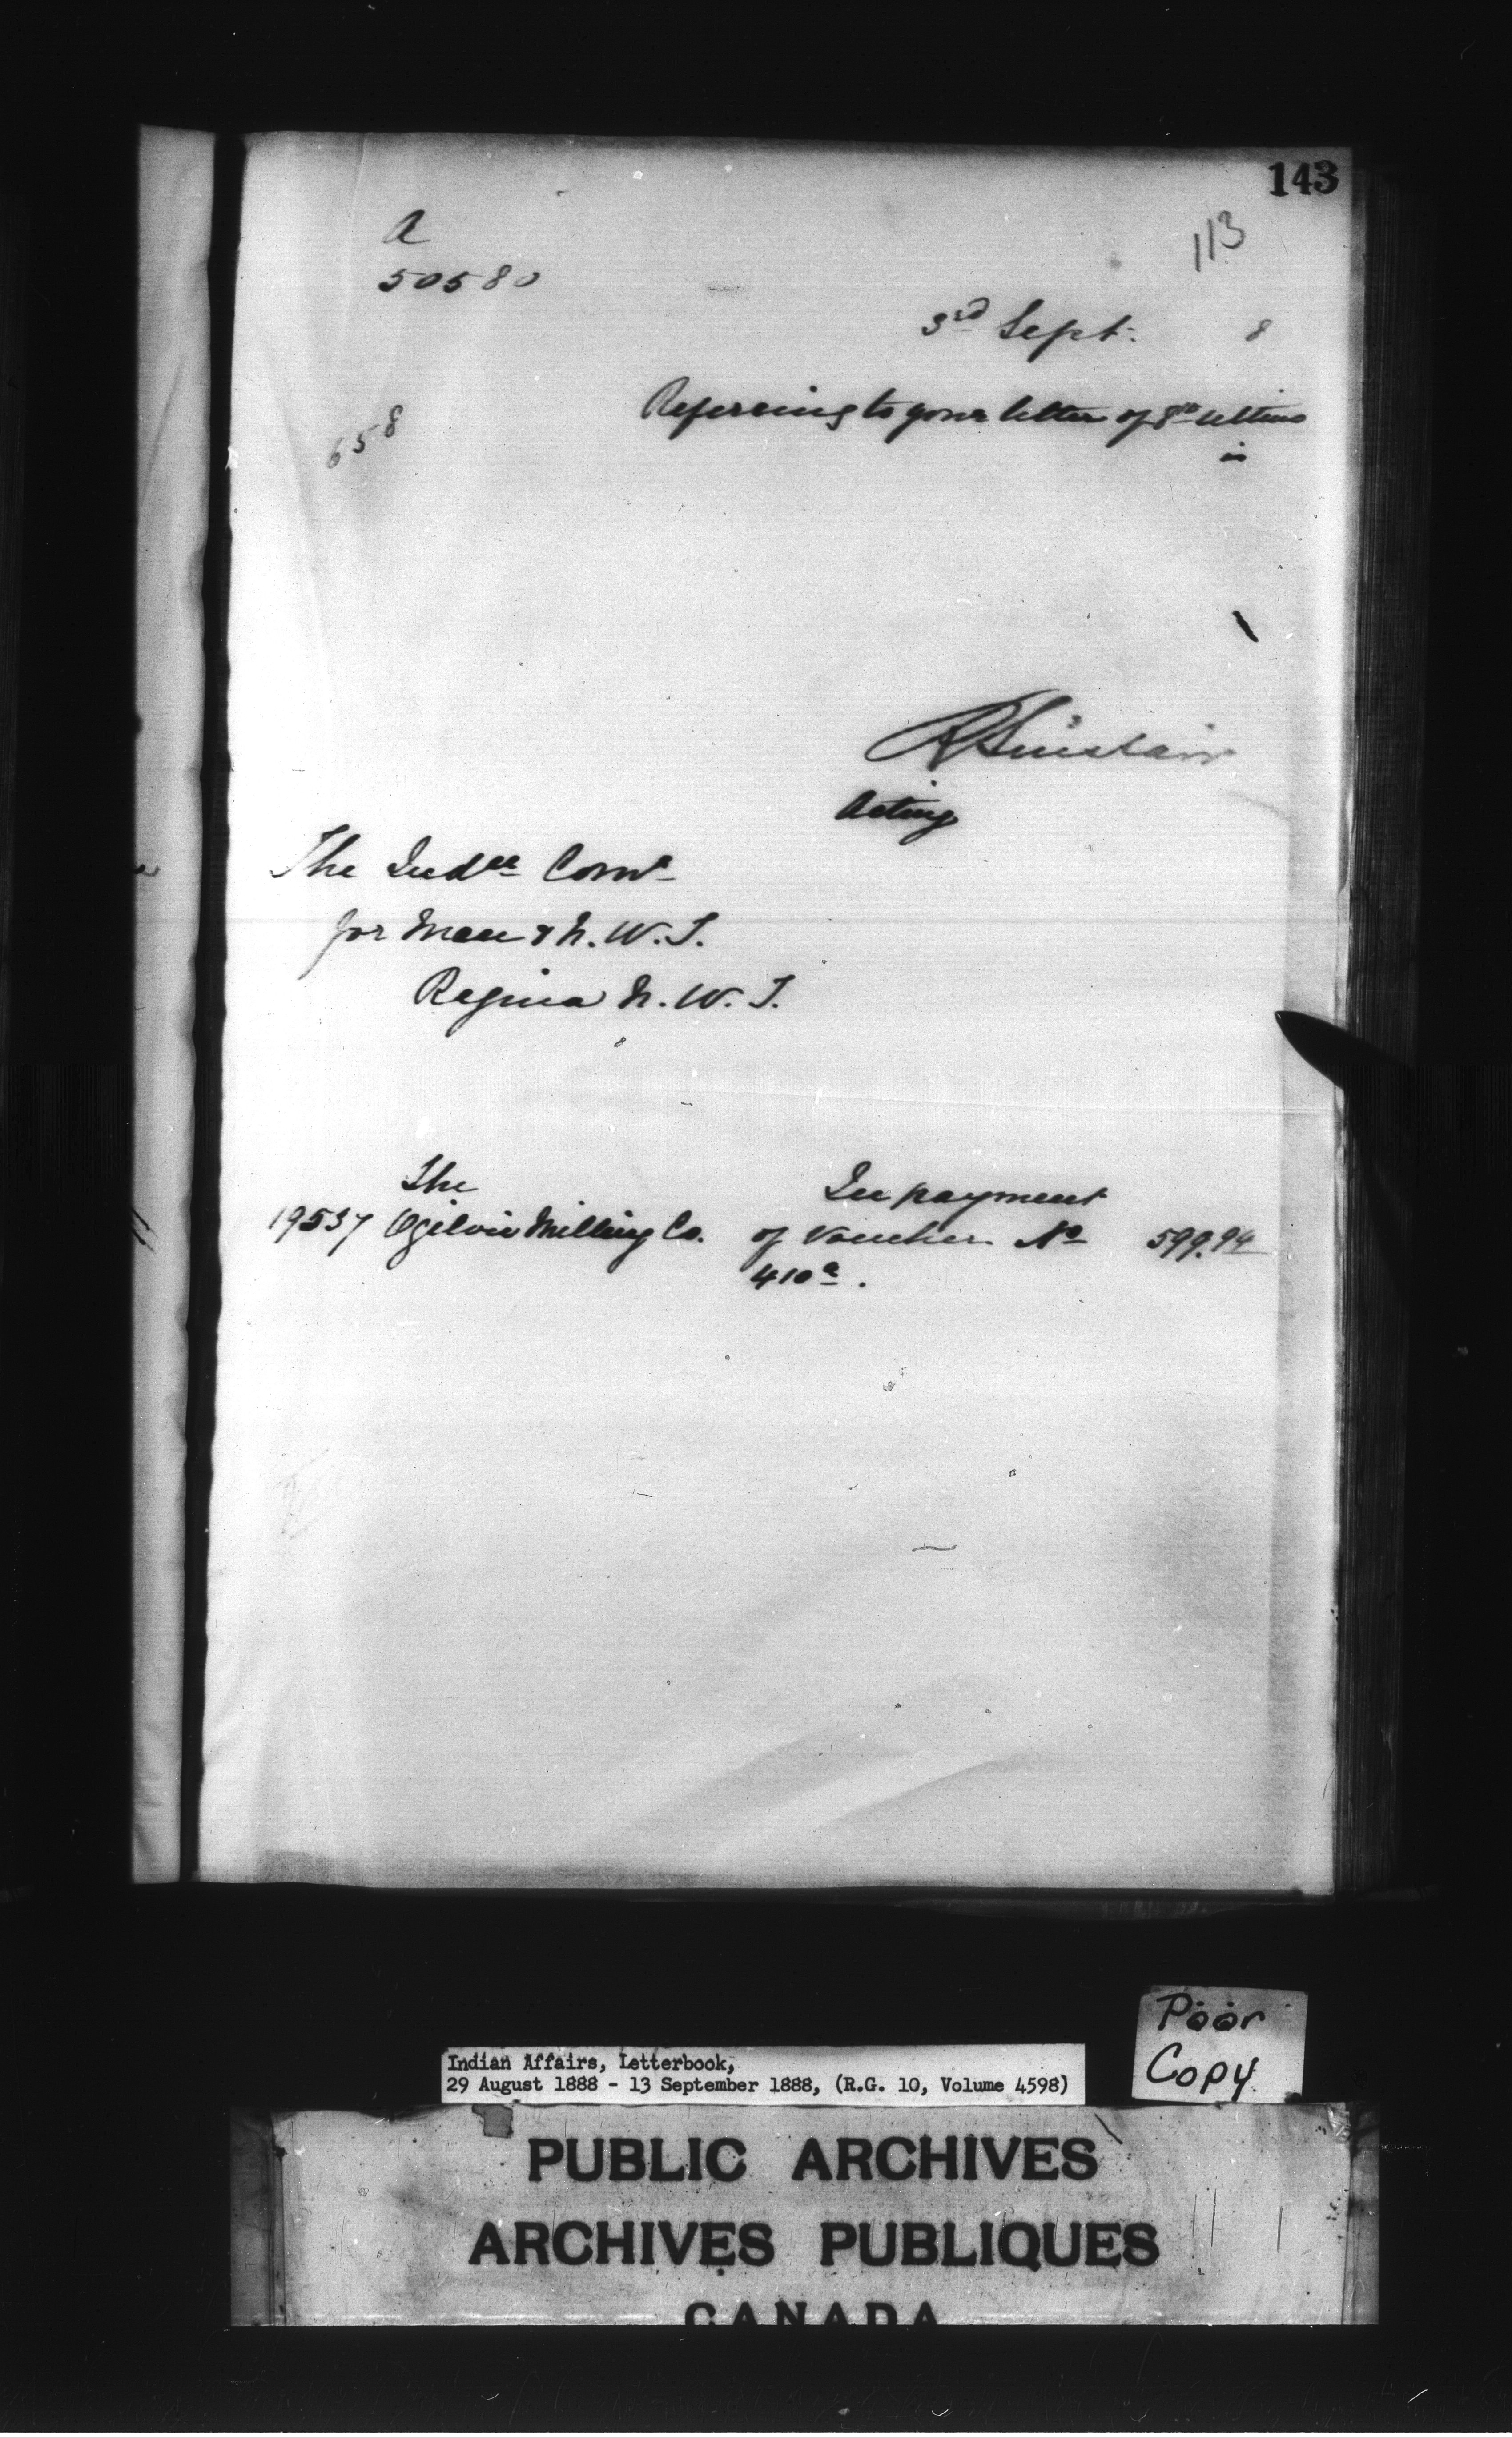 143
113
A
50580
3rd Sept. 8
658
Referring to your letter of 8th ultimo
is
R Sinclair
Acting
The Indn Comr
for Man & N.W.T.
Regina N.W.T.
The In payment
19537 Ogilvie Milling Co. of Voucher No 599.94
410a.
Poor
Copy
Indian Affairs, Letterbook,
29 August 1888 - 13 September 1888, (R.G. 10, Volume 4598)
PUBLIC ARCHIVES
ARCHIVES PUBLIQUES
CANADA